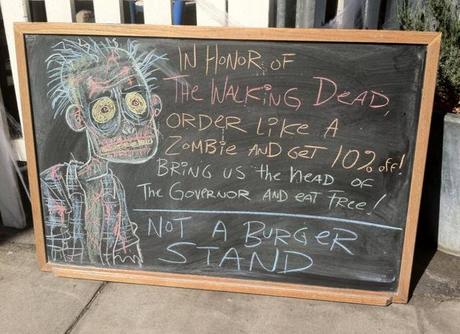 IN HONOR OF
THE WALKING DEAD,
ORDER LIKE A
ZOMBIE AND GET 10% off!
BRING US the HEAD OF
THE GOVERNOR AND EAT FREE!
NOT A BURGER
STAND